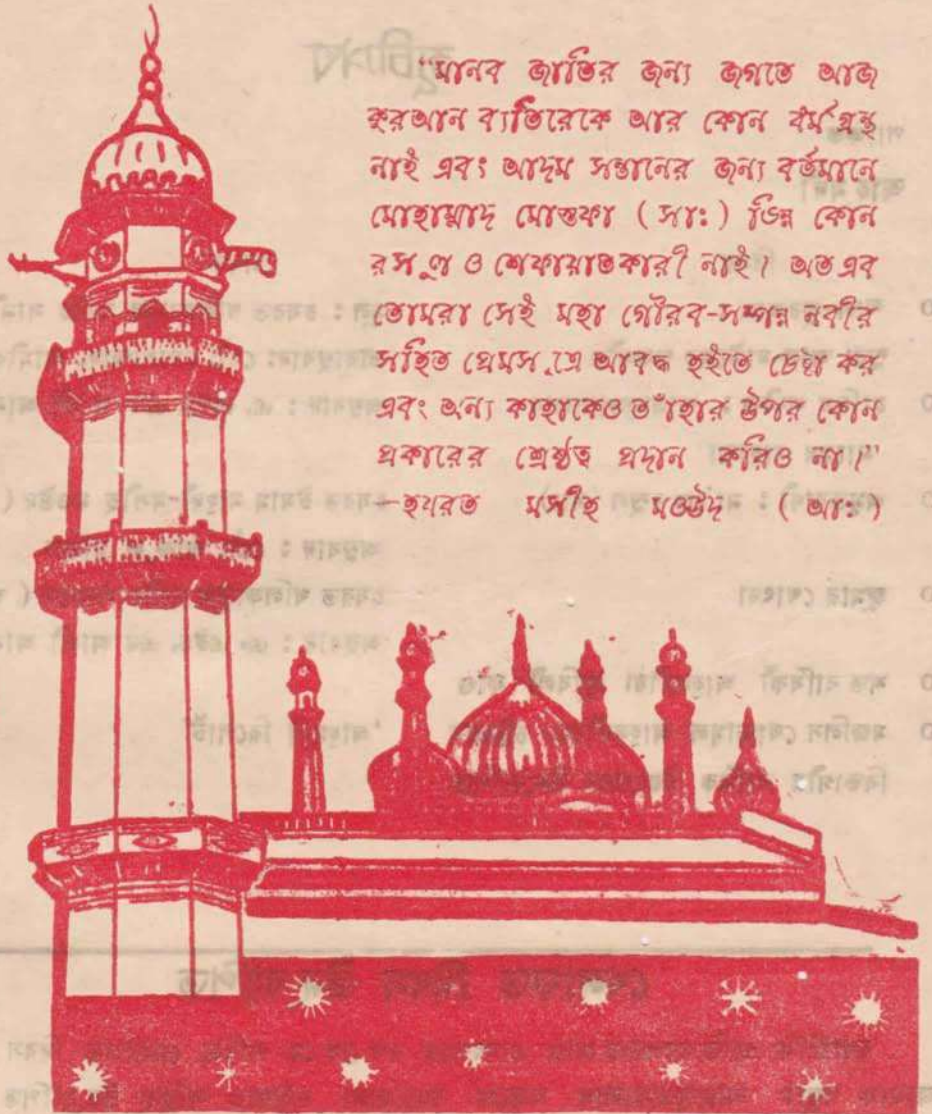 “মানব জাতির জন্য জগতে আজ
কুরআন ব্যতিরেকে আর কোন ধর্ম গ্রন্থ
নাই এবং আদম সন্তানের জন্য বর্তমানে
মোহাম্মাদ মোস্তফা (সাঃ) ভিন্ন কোন
রসূল ও শেফায়াতকারী নাই। অতএব
তোমরা সেই মহা গৌরব-সম্পন্ন নবীর
সহিত প্রেমসূত্রে আবদ্ধ হইতে চেষ্টা কর
এবং অন্য কাহাকেও তাঁহার উপর কোন
প্রকারের শ্রেষ্ঠত্ব প্রদান করিও না।”
—হযরত মসীহ মওউদ (আঃ)